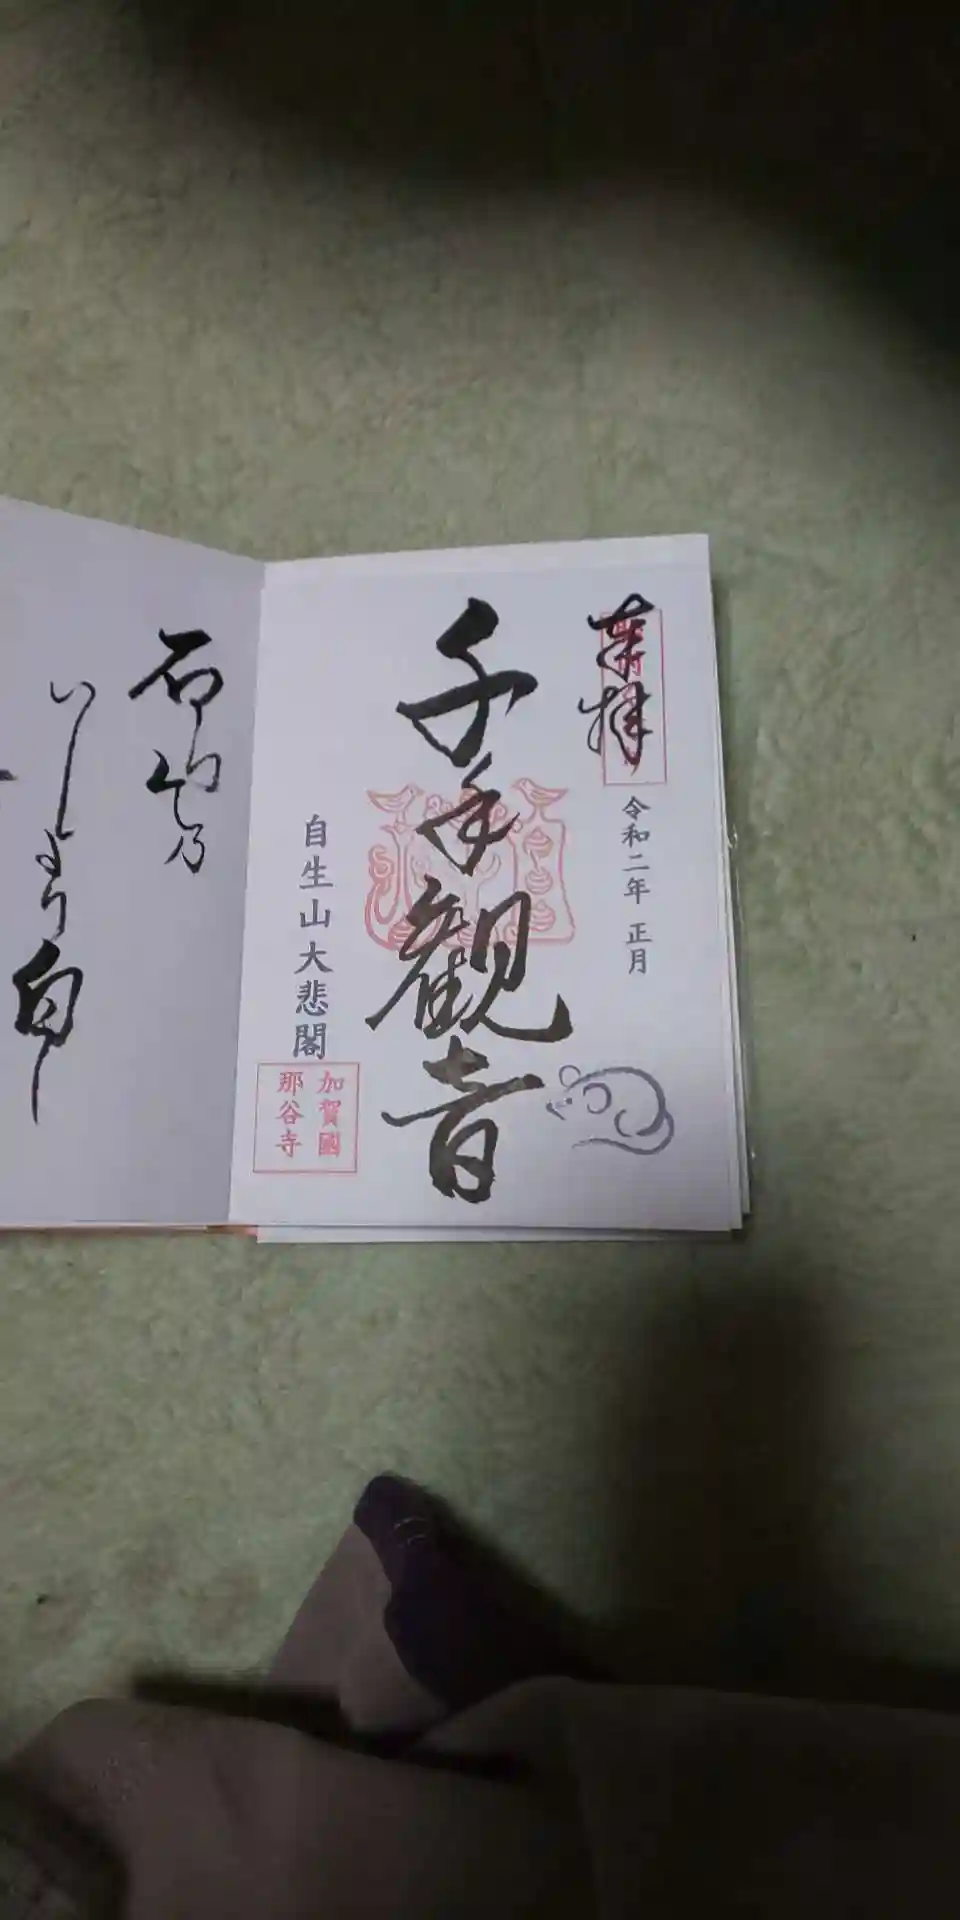 奉拝
令和二年 正月
千手観音
自生山大悲閣
加賀國
那谷寺
石山乃
いしより白し